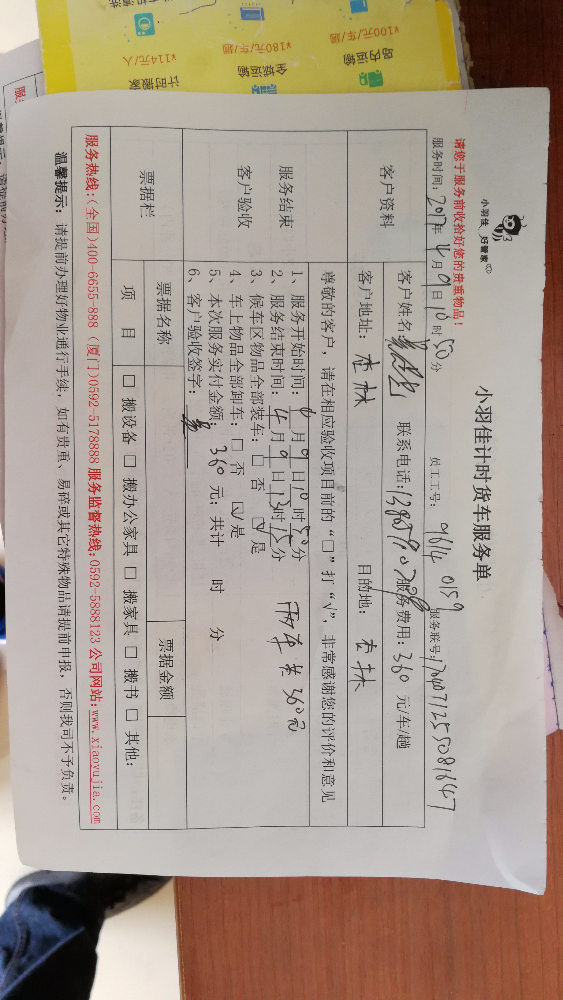 小羽佳 好管家
小羽佳计时货车服务单
请您于服务前收拾好您的贵重物品！
员工工号： 9614 0159
服务联号：
服务时间：2017年4月9日10时50分
客户资料
客户姓名
联系电话：
服务费用：360元/车/趟
客户地址：杏林
目的地：杏林
尊敬的客户，请在相应验收项目前的“□”打“√”，非常感谢您的评价和意见
服务结束
客户验收
1、服务开始时间：4月9日10时50分
2、服务结束时间：4月9日13时15分
两车共360元
3、候车区物品全部装车：□ 否 ☑ 是
4、车上物品全部卸车：□ 否 ☑ 是
5、本次服务实付金额：360元；共计 时 分
6、客户验收签字：
票据栏
票据名称
票据金额
项 目
□ 搬设备 □ 搬办公家具 □ 搬家具 □ 搬书 □ 其他：
服务热线：(全国)400-6655-888 (厦门)0592-5178888 服务监督热线：0592-5888123 公司网站：www.xiaoyujia.com
温馨提示：请提前办理好物业通行手续，如有贵重、易碎或其它特殊物品请提前申报，否则我司不予负责。
计时搬家
¥114元/人
全城运输
¥180元/车/趟
岛内运输
¥100元/车/趟